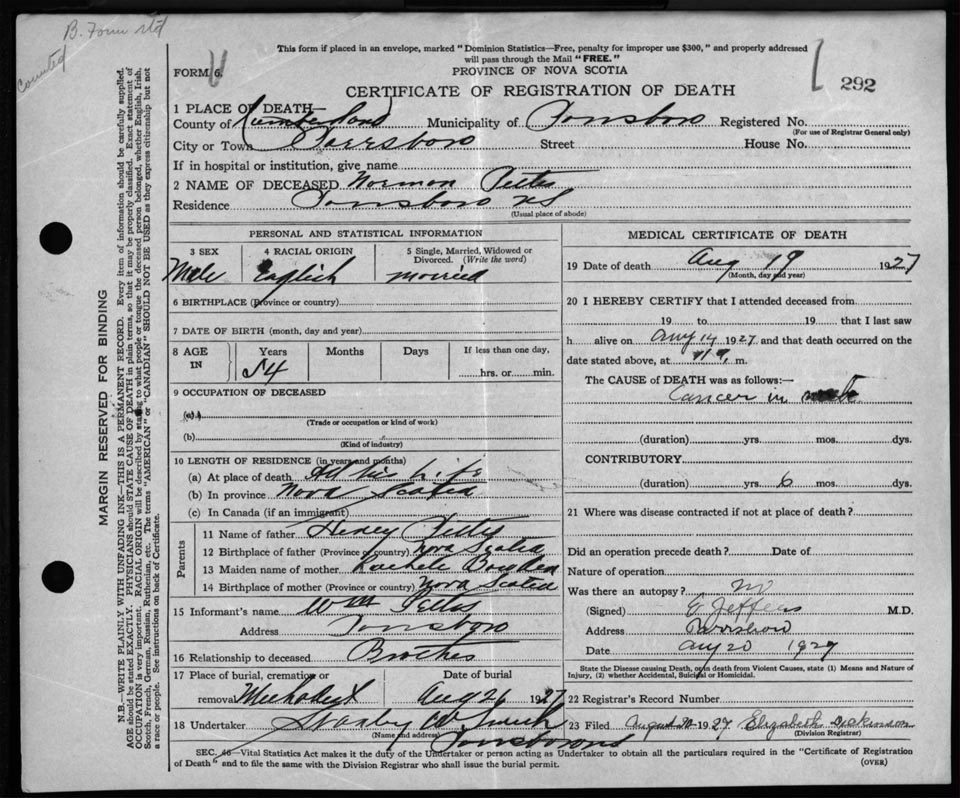 B. Form std
Counted
This form if placed in an envelope, marked "Dominion Statistics—Free, penalty for improper use $300," and properly addressed
will pass through the Mail "FREE."
FORM 6.
PROVINCE OF NOVA SCOTIA
292
CERTIFICATE OF REGISTRATION OF DEATH
1 PLACE OF DEATH—
County of Cumberland Municipality of Parrsboro Registered No.
(For use of Registrar General only)
City or Town Parrsboro Street House No.
If in hospital or institution, give name
2 NAME OF DECEASED Norman
Residence Parrsboro NS
(Usual place of abode)
PERSONAL AND STATISTICAL INFORMATION
3 SEX 4 RACIAL ORIGIN 5 Single, Married, Widowed or Divorced. (Write the word)
Male English married
6 BIRTHPLACE (Province or country)
7 DATE OF BIRTH (month, day and year)
8 AGE IN Years Months Days If less than one day,
54 hrs. or min.
9 OCCUPATION OF DECEASED
(a)
(Trade or occupation or kind of work)
(b)
(Kind of industry)
10 LENGTH OF RESIDENCE (in years and months)
(a) At place of death All his life
(b) In province Nova Scotia
(c) In Canada (if an immigrant)
Parents
11 Name of father Henry
12 Birthplace of father (Province or country) Nova Scotia
13 Maiden name of mother
14 Birthplace of mother (Province or country) Nova Scotia
15 Informant's name Wm
Address Parrsboro
16 Relationship to deceased Brother
17 Place of burial, cremation or removal Date of burial
Methodist Aug 21 1927
18 Undertaker Smith
(Name and address) Parrsboro NS
MEDICAL CERTIFICATE OF DEATH
19 Date of death Aug 19 1927
(Month, day and year)
20 I HEREBY CERTIFY that I attended deceased from
19 to 19 that I last saw
h alive on Aug 14 1927 and that death occurred on the
date stated above, at m.
The CAUSE of DEATH was as follows:—
Cancer in
(duration) yrs. mos. dys.
CONTRIBUTORY
(duration) yrs. 6 mos. dys.
21 Where was disease contracted if not at place of death?
Did an operation precede death? Date of
Nature of operation
Was there an autopsy? no
(Signed) M.D.
Address Parrsboro
Date Aug 20 1927
State the Disease causing Death, or in death from Violent Causes, state (1) Means and Nature of
Injury, (2) whether Accidental, Suicidal or Homicidal.
22 Registrar's Record Number
23 Filed August 1927 Elizabeth Dickinson
(Division Registrar)
SEC. 46—Vital Statistics Act makes it the duty of the Undertaker or person acting as Undertaker to obtain all the particulars required in the "Certificate of Registration
of Death" and to file the same with the Division Registrar who shall issue the burial permit.
(OVER)
MARGIN RESERVED FOR BINDING
N.B.—WRITE PLAINLY WITH UNFADING INK—THIS IS A PERMANENT RECORD. Every item of information should be carefully supplied.
AGE should be stated EXACTLY. PHYSICIANS should STATE CAUSE OF DEATH in plain terms, so that it may be properly classified. Exact statement of
OCCUPATION is very important. RACIAL ORIGIN will be described by stating to what people or tongue the deceased person belonged, whether English, Irish,
Scotch, French, German, Russian, Ruthenian, etc. The terms "AMERICAN" or "CANADIAN" SHOULD NOT BE USED as they express citizenship but not
a race or people. See instructions on back of Certificate.